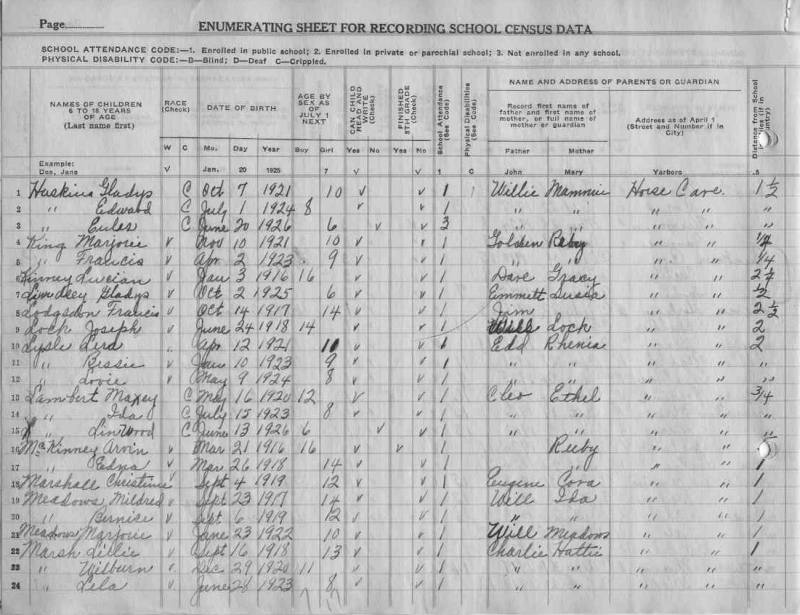 Page
ENUMERATING SHEET FOR RECORDING SCHOOL CENSUS DATA
SCHOOL ATTENDANCE CODE:—1. Enrolled in public school; 2. Enrolled in private or parochial school; 3. Not enrolled in any school.
PHYSICAL DISABILITY CODE:—B—Blind; D—Deaf C—Crippled.
NAMES OF CHILDREN 6 TO 18 YEARS OF AGE (Last name first) RACE (Check) DATE OF BIRTH AGE BY SEX AS OF JULY 1 NEXT CAN CHILD READ AND WRITE (Check) FINISHED 8TH GRADE (Check) School Attendance (See Code) Physical Disabilities (See Code) NAME AND ADDRESS OF PARENTS OR GUARDIAN Distance from School
Record first name of father and first name of mother, or full name of mother or guardian Address as of April 1 (Street and Number if in City)
W C Mo. Day Year Boy Girl Yes No Yes No Father Mother
Example: Doe, Jane V Jan. 20 1925 7 V V 1 C John Mary Yarboro .5
1 Huskins Gladys C Oct 7 1921 10 v v 1 Willie Mammie Horse Cave 1 1/2
2 " Edward C July 1 1924 8 v v 1 " " " " "
3 " Eules C June 20 1926 6 v v 3 " " " " "
4 King Marjorie v Nov 10 1921 10 v v 1 Golden Reby " "
5 " Francis v Apr 2 1923 9 v v 1 " " " " 1/4
6 Kinney Lucian v Jan 3 1916 16 v v 1 Dave Gracy " "
7 Gladys v Oct 2 1925 6 v v 1 Emmett " " 1/2
8 Lodgsdon Francis v Oct 14 1917 14 v v 1 Jim " " 2 1/2
9 Lock Joseph v June 24 1918 14 v v 1 Will Lock " " 2
10 Lyle " Apr 12 1921 v v 1 Edd Rhenia " " 2
11 " Bessie v Jan 10 1923 9 v v 1 " " " " "
12 " Dovie v May 9 1924 8 v v 1 " " " " "
13 Lambert Maxey C May 16 1920 12 v v 1 Cleo Ethel " " 3/4
14 " Ida C July 15 1923 8 v v 1 " " " " "
15 " Linwood C June 13 1926 6 v v 1 " " " " "
16 McKinney Arvin v Mar 21 1916 16 v v 1 Ruby " "
17 " Edna v Mar 26 1918 14 v v 1 " " " 1
18 Marshall Christine v Sept 4 1919 12 v v 1 Eugene Cora " " 1
19 Meadows Mildred v Sept 23 1917 14 v v 1 Will Ida " " 1
20 " Bernise v Sept 6 1919 12 v v 1 " " " " 1
21 Meadows Marjorie v June 23 1922 10 v v 1 Will Meadows " " 1
22 Marsh Lillie v Sept 16 1918 13 v v 1 Charlie Hattie " " 1
23 " Wilburn v Dec 29 1920 11 v v 1 " " " " "
24 " Lela v June 1923 8 v v 1 " " " " "